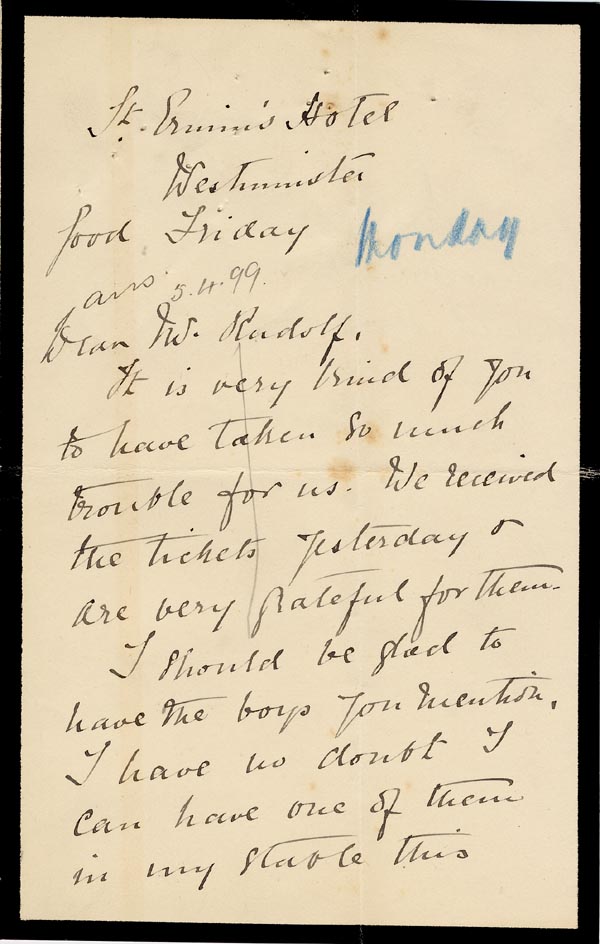 St. Ermin's Hotel
Westminster
Good Friday
Monday
ans 5.4.99.
Dear Mr. Rudolf,
It is very kind of you
to have taken so much
trouble for us. We received
the tickets yesterday &
are very grateful for them.
I should be glad to
have the boys you mention,
I have no doubt I
can have one of them
in my stable this